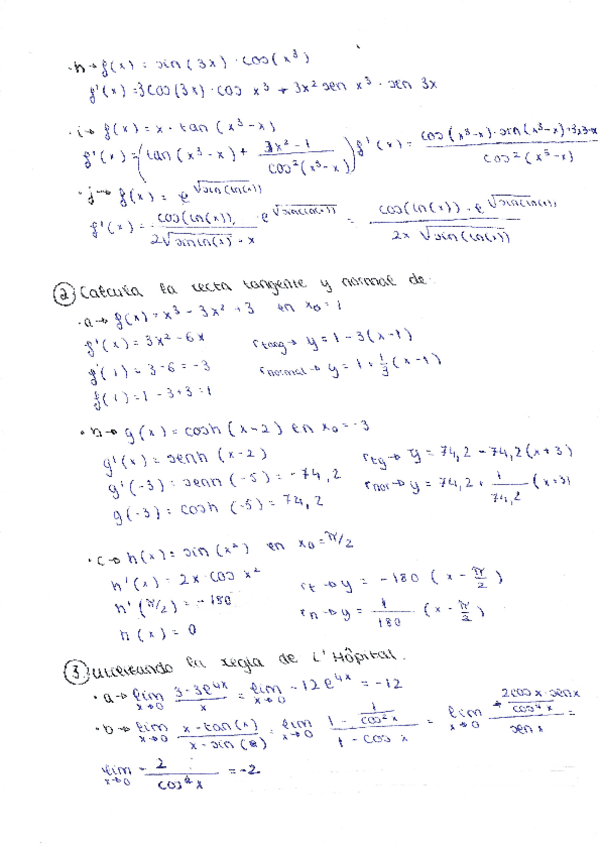 ·h→ f(x) = sin(3x) · cos(x³)
f'(x) = 3cos(3x) · cos x³ + 3x² sen x³ · sen 3x
·i→ f(x) = x · tan(x³-x)
f'(x) = (tan(x³-x) + (3x²-1)/(cos²(x³-x))) f'(x) = (cos(x³-x) · sin(x³-x) +3x3-x)/(cos²(x³-x))
·j→ f(x) = e^√(sin(ln(x)))
f'(x) = (cos(ln(x)))/(2√(sin(ln(x))) · x) · e^√(sin(ln(x))) = (cos(ln(x)) · e^√(sin(ln(x))))/(2x √(sin(ln(x))))
② Calcula la recta tangente y normal de:
·a→ f(x) = x³ - 3x² + 3 en x₀ = 1
f'(x) = 3x² - 6x
r tang→ y = 1 - 3(x-1)
f'(1) = 3-6 = -3
r normal→ y = 1 + 1/3 (x-1)
f(1) = 1 - 3+3 = 1
·b→ g(x) = cosh(x-2) en x₀ = -3
g'(x) = senh(x-2)
r tg→ y = 74,2 - 74,2(x+3)
g'(-3) = senh(-5) = -74,2
r nor→ y = 74,2 + 1/74,2 (x+3)
g(-3) = cosh(-5) = 74,2
·c→ h(x) = sin(x²) en x₀ = π/2
h'(x) = 2x · cos x²
r t→ y = -180 (x - π/2)
h'(π/2) = -180
r n→ y = 1/180 (x - π/2)
h(x) = 0
③ Utilizando la regla de L'Hôpital.
·a→ lim x→0 (3-3e^4x)/x = lim x→0 -12e^4x = -12
·b→ lim x→0 (x-tan(x))/(x-sin(x)) = lim x→0 (1 - 1/cos²x)/(1-cos x) = lim x→0 (- (2cosx · senx)/(cos⁴x))/(sen x) =
lim x→0 - 2/(cos⁴x) = -2